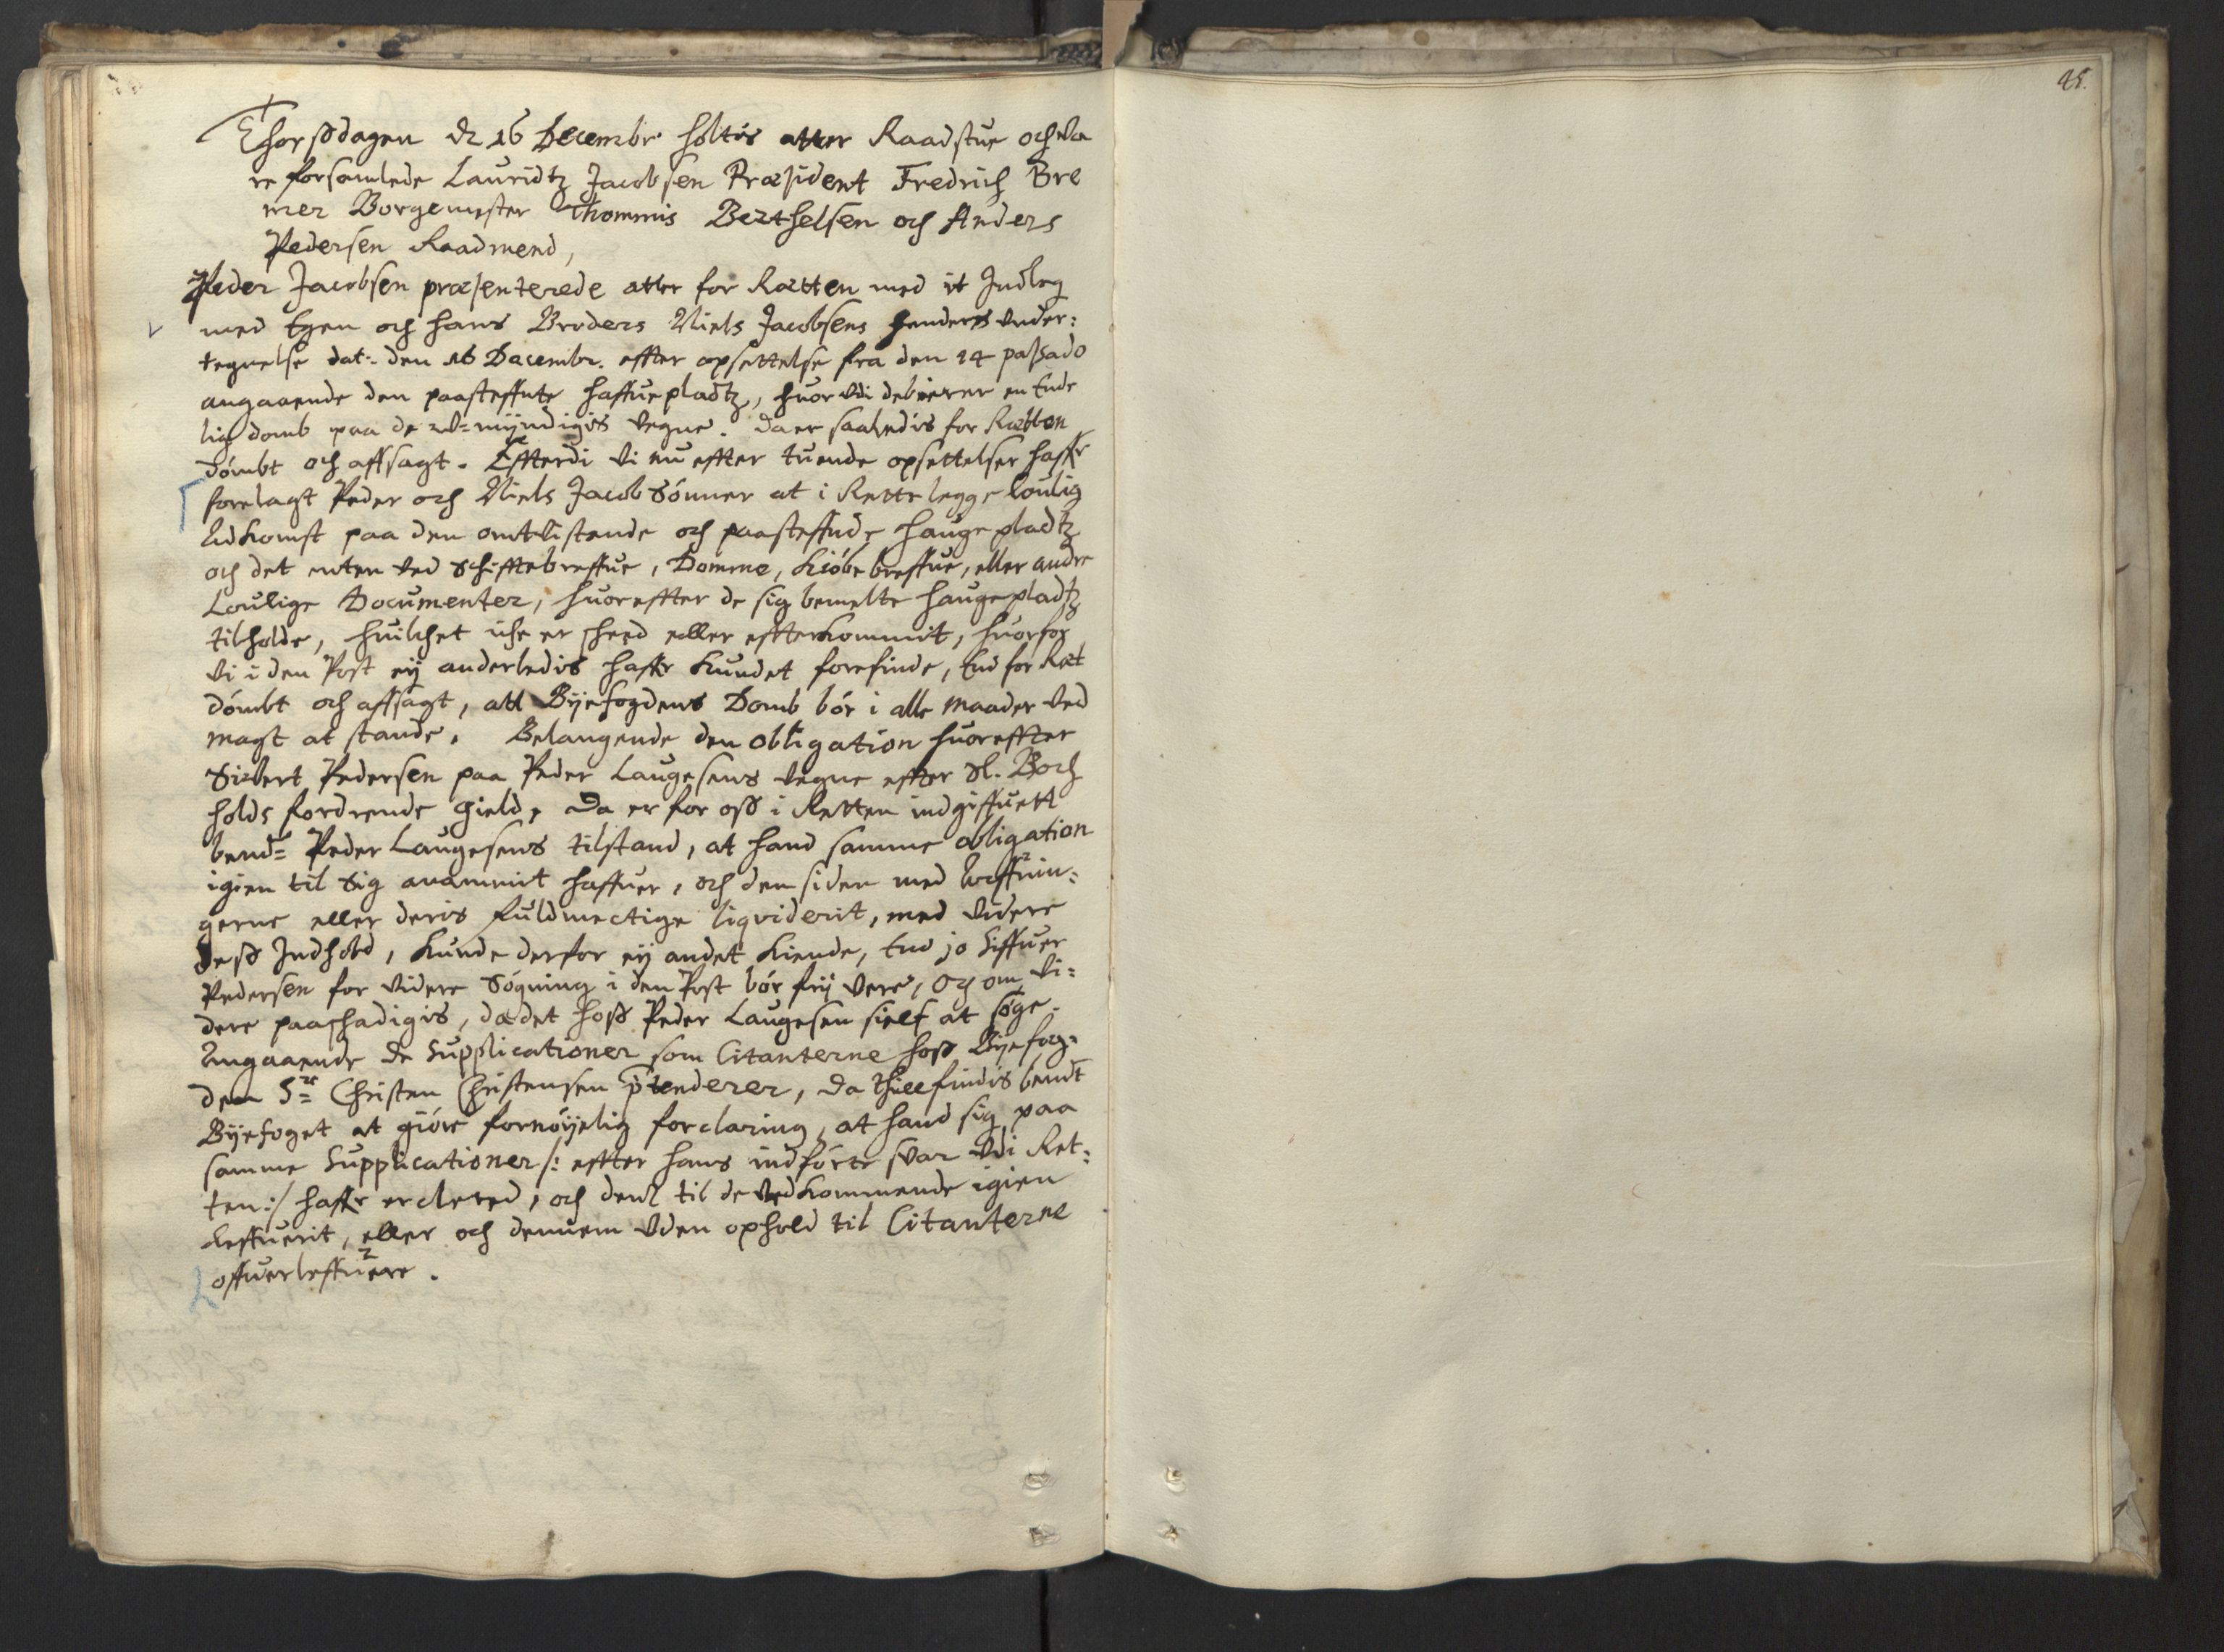 Thorssdagen d. 16 Decembr holtis atter Raadstue och va
re forsamlede Lauridtz Jacobsen Præsident Fredrich Bre
mer Borgemester Thommis Berthelsen och Anders
Pedersen Raadmend,
Peder Jacobsen præsenterede atter for Rætten med it Indleg
med Egen och hans Broders Niels Jacobsens henders under:
tegnelse dat: den 16 Decembr. effter opsettelse fra den 14 passado
angaaende den paasteffnte haffuepladtz, huor udi de begierer en Ende
lig domb paa de u=myndigis vegne. Da er saaledis for Rætten
dómbt och affsagt. Effterdi vi nu effter tuende opsettelser haffr
forelagt Peder och Niels Jacob Sónner at i Rette legge loulig
Adkomst paa den omtvistende och paasteffnde haugepladtz
och det enten ved Schifftebreffue, Domme, Kióbe breffue, eller andre
Loulige Documenter, huoreffter de sig bemelte haugepladtz
tilholde, huilchet iche er scheed eller effterkommit, huorfor
vi i den Post eij anderledis haffr kundet forefinde, End for Ret
dómbt och affsagt, att Bijefogdens Domb bór i alle maader ved
magt at stande. Belangende den obligation huoreffter
Sivert Pedersen paa Peder Laugesens vegne effter Sl. Boch
holds fordrende Gield, Da er for oss i Retten indgiffuett
bemd= Peder Laugesens tilstand, at hand samme obligation
igien til sig anammit haffuer, och den siden med Arffuin:
gerne eller deris fuldmectige liqviderit, med videre
dess Indhold, Kunde derfor eij andet kiende, End jo Siffuer
Pedersen for videre Sógning i den Post bór frij vere, Och om vi:
dere paaschadigis, da det hoss Peder Laugesen sielf at sóge.
Angaaende de Supplicationer som Citanterne hoss Bijefog=
den Sr= Christen Christensen prætenderer, da tillfindis bemt
Bijefoget at gióre fornóijelig forclaring, at hand sig paa
samme Supplicationer /: effter hans indfórte svar udi Ret:
ten :/ haffr ercleret, och dend til de vedkommende igien
leffuerit, eller och dennem uden ophold til Citanterne
offuerleffuere.
45.